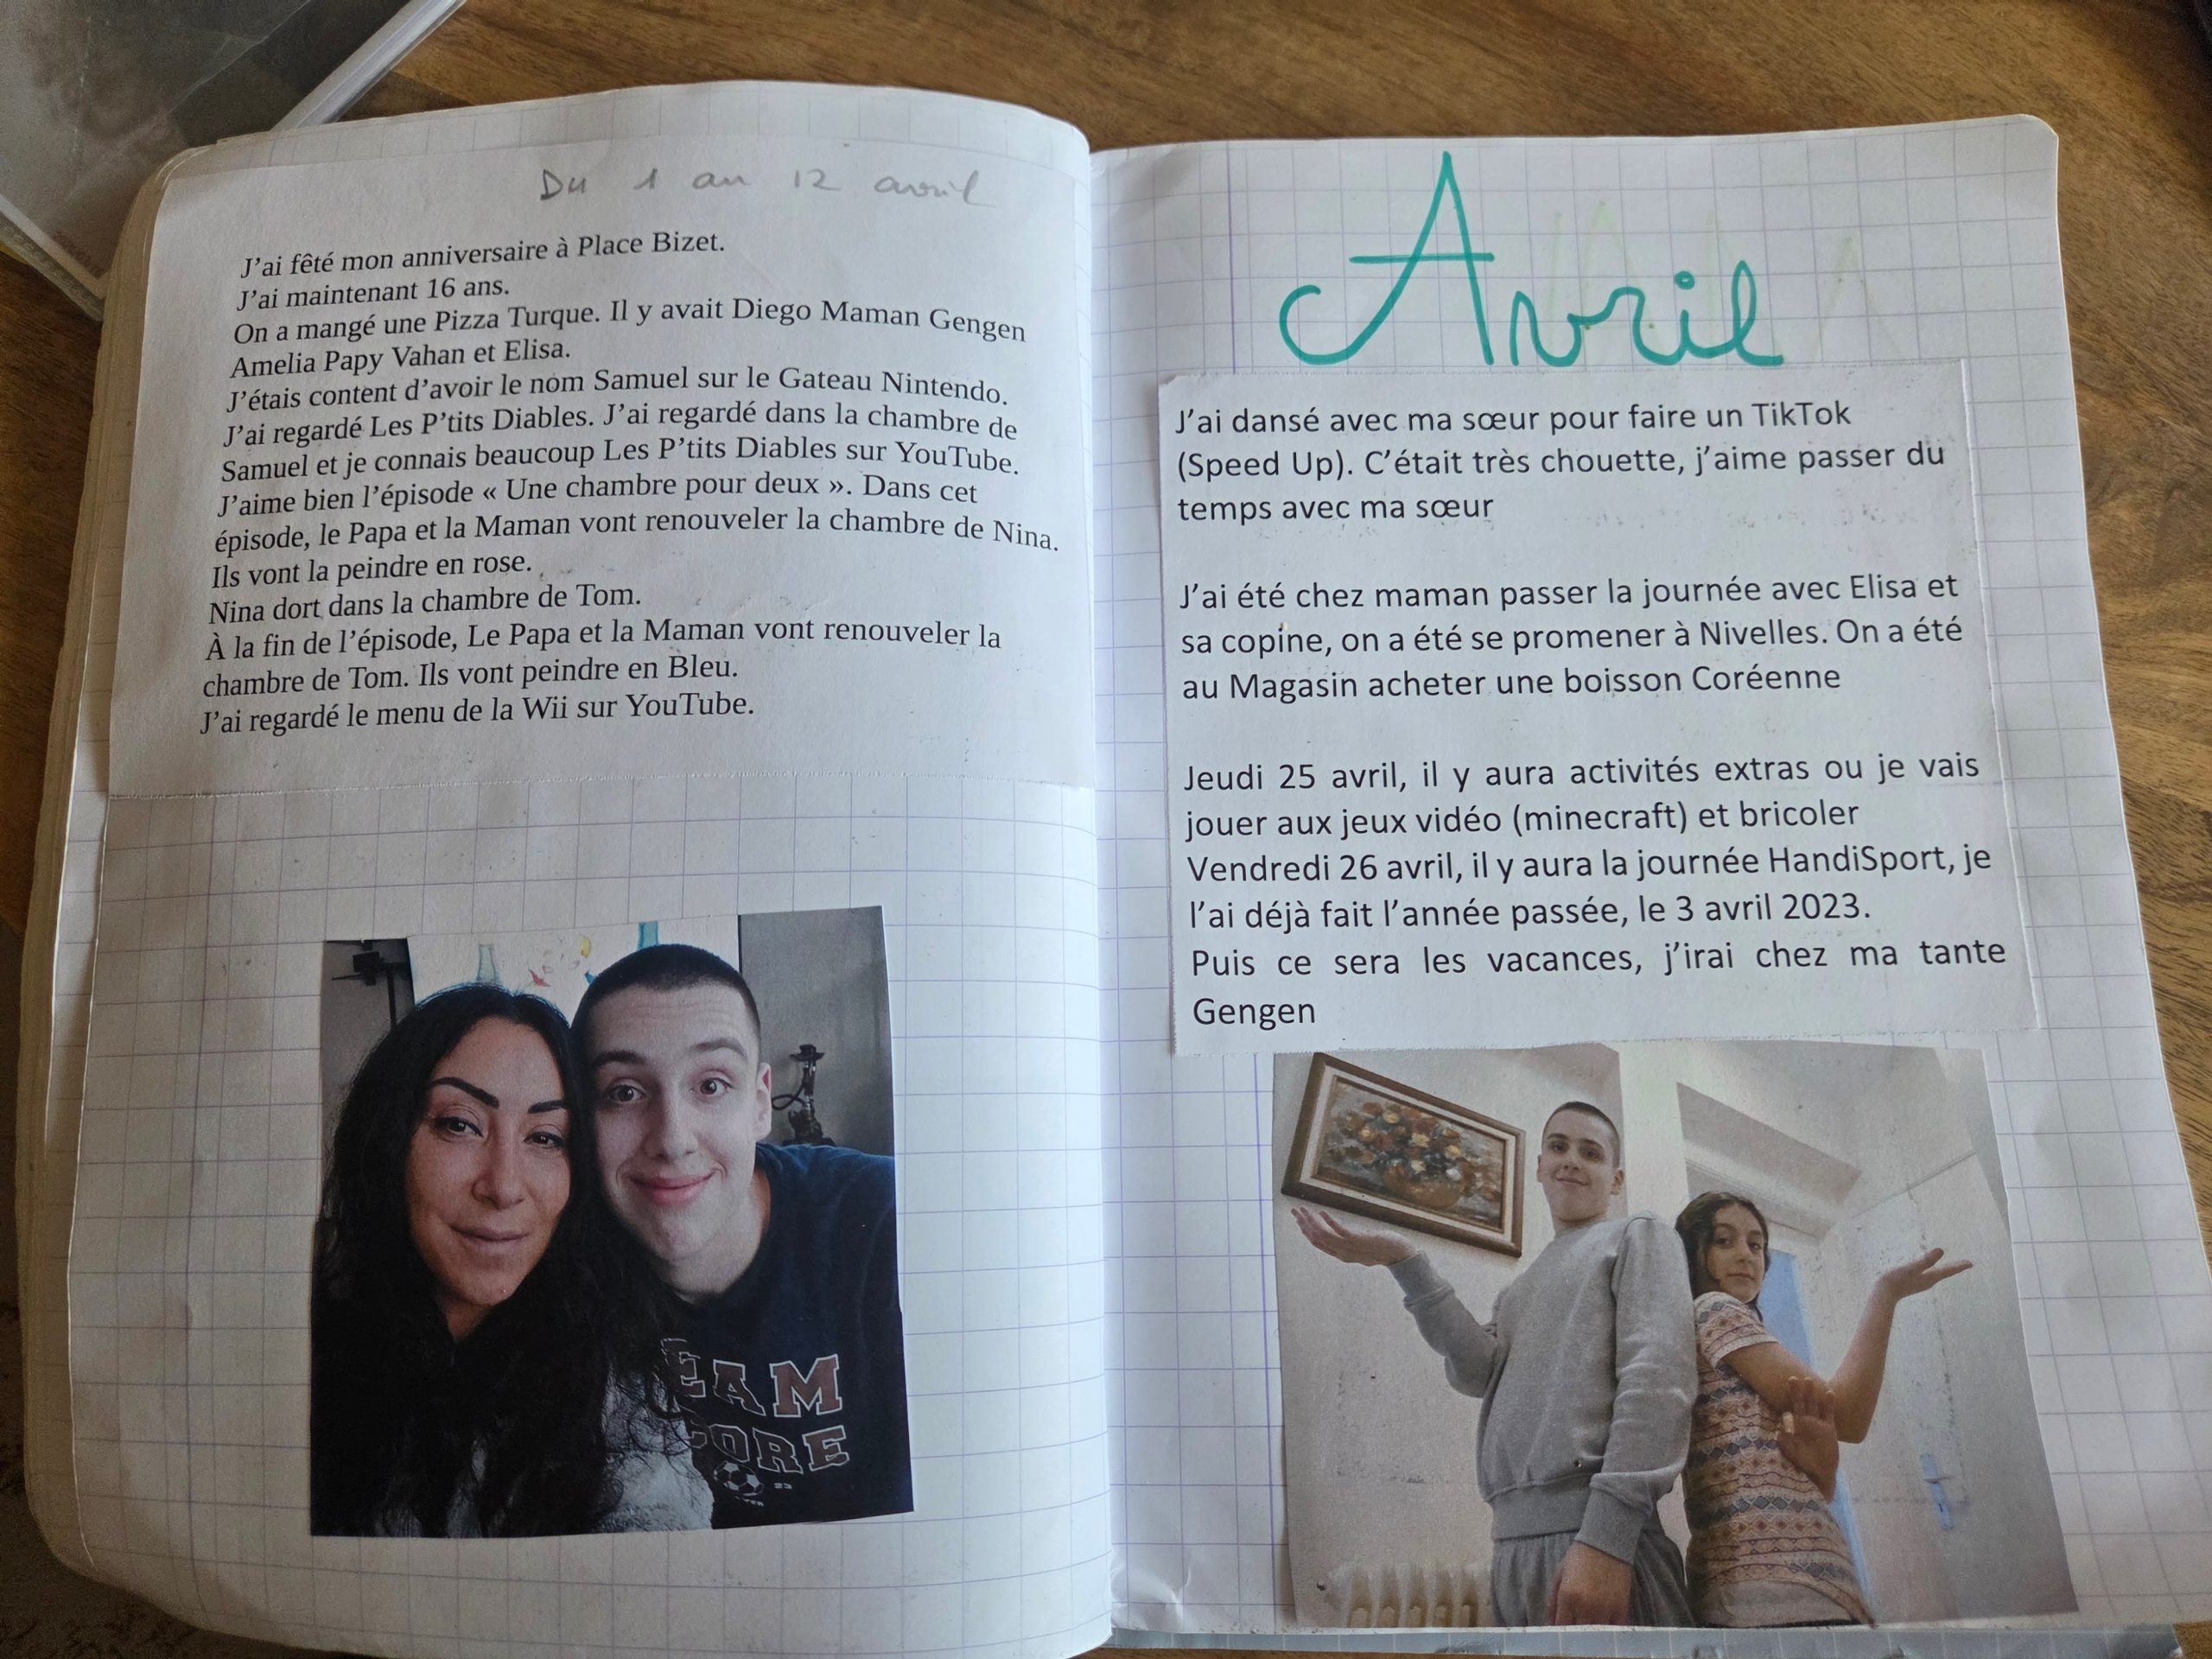 Du 1 au 12 avril
J'ai fêté mon anniversaire à Place Bizet.
J'ai maintenant 16 ans.
On a mangé une Pizza Turque. Il y avait Diego Maman Gengen
Amelia Papy Vahan et Elisa.
J'étais content d'avoir le nom Samuel sur le Gateau Nintendo.
J'ai regardé Les P'tits Diables. J'ai regardé dans la chambre de
Samuel et je connais beaucoup Les P'tits Diables sur YouTube.
J'aime bien l'épisode « Une chambre pour deux ». Dans cet
épisode, le Papa et la Maman vont renouveler la chambre de Nina.
Ils vont la peindre en rose.
Nina dort dans la chambre de Tom.
À la fin de l'épisode, Le Papa et la Maman vont renouveler la
chambre de Tom. Ils vont peindre en Bleu.
J'ai regardé le menu de la Wii sur YouTube.
EAM
CORE
Avril
J'ai dansé avec ma sœur pour faire un TikTok
(Speed Up). C'était très chouette, j'aime passer du
temps avec ma sœur
J'ai été chez maman passer la journée avec Elisa et
sa copine, on a été se promener à Nivelles. On a été
au Magasin acheter une boisson Coréenne
Jeudi 25 avril, il y aura activités extras ou je vais
jouer aux jeux vidéo (minecraft) et bricoler
Vendredi 26 avril, il y aura la journée HandiSport, je
l'ai déjà fait l'année passée, le 3 avril 2023.
Puis ce sera les vacances, j'irai chez ma tante
Gengen